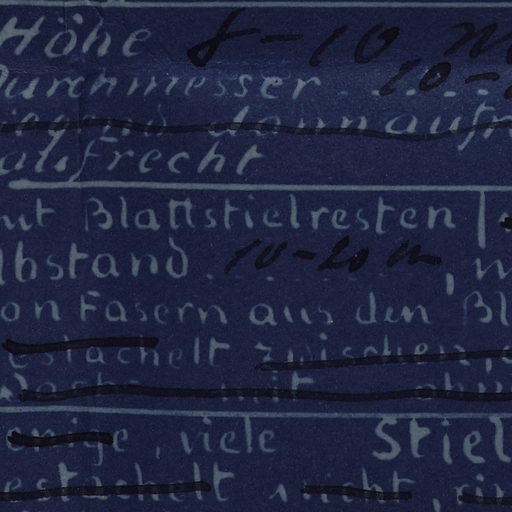 Höhe 8-10 m
Durchmesser 10-
liegend dann aufr
aufrecht
mit Blattstielresten
lbstand 10-20 m
on Fasern aus den Bl
estachelt zwischen
mit ohn
enige, viele Stiel
estachelt nicht